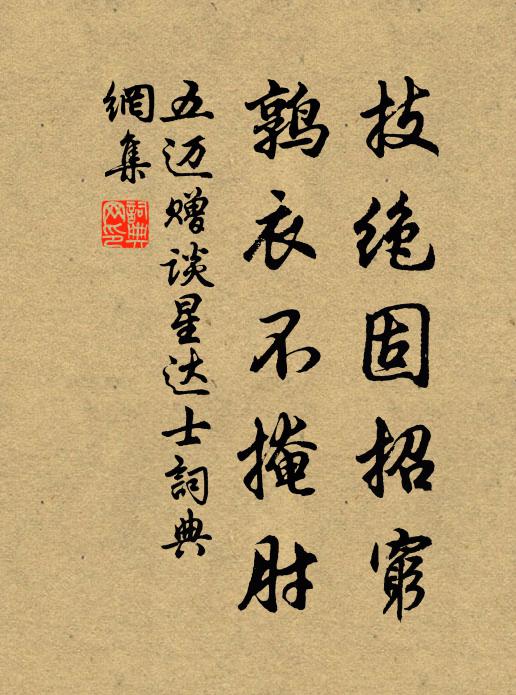 技绝固招窮
鹑衣不掩肘
五迈赠谈星达士詞典
網集
詞典
网印